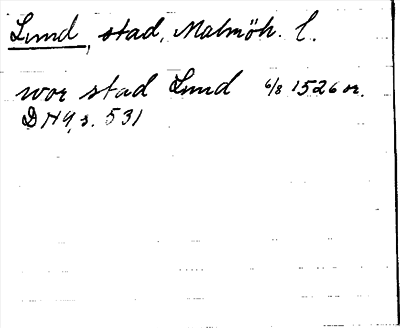 Lund, stad, Malmöh. l.
wor stad Lund 6/8 1526 or.
DN 9, s. 531